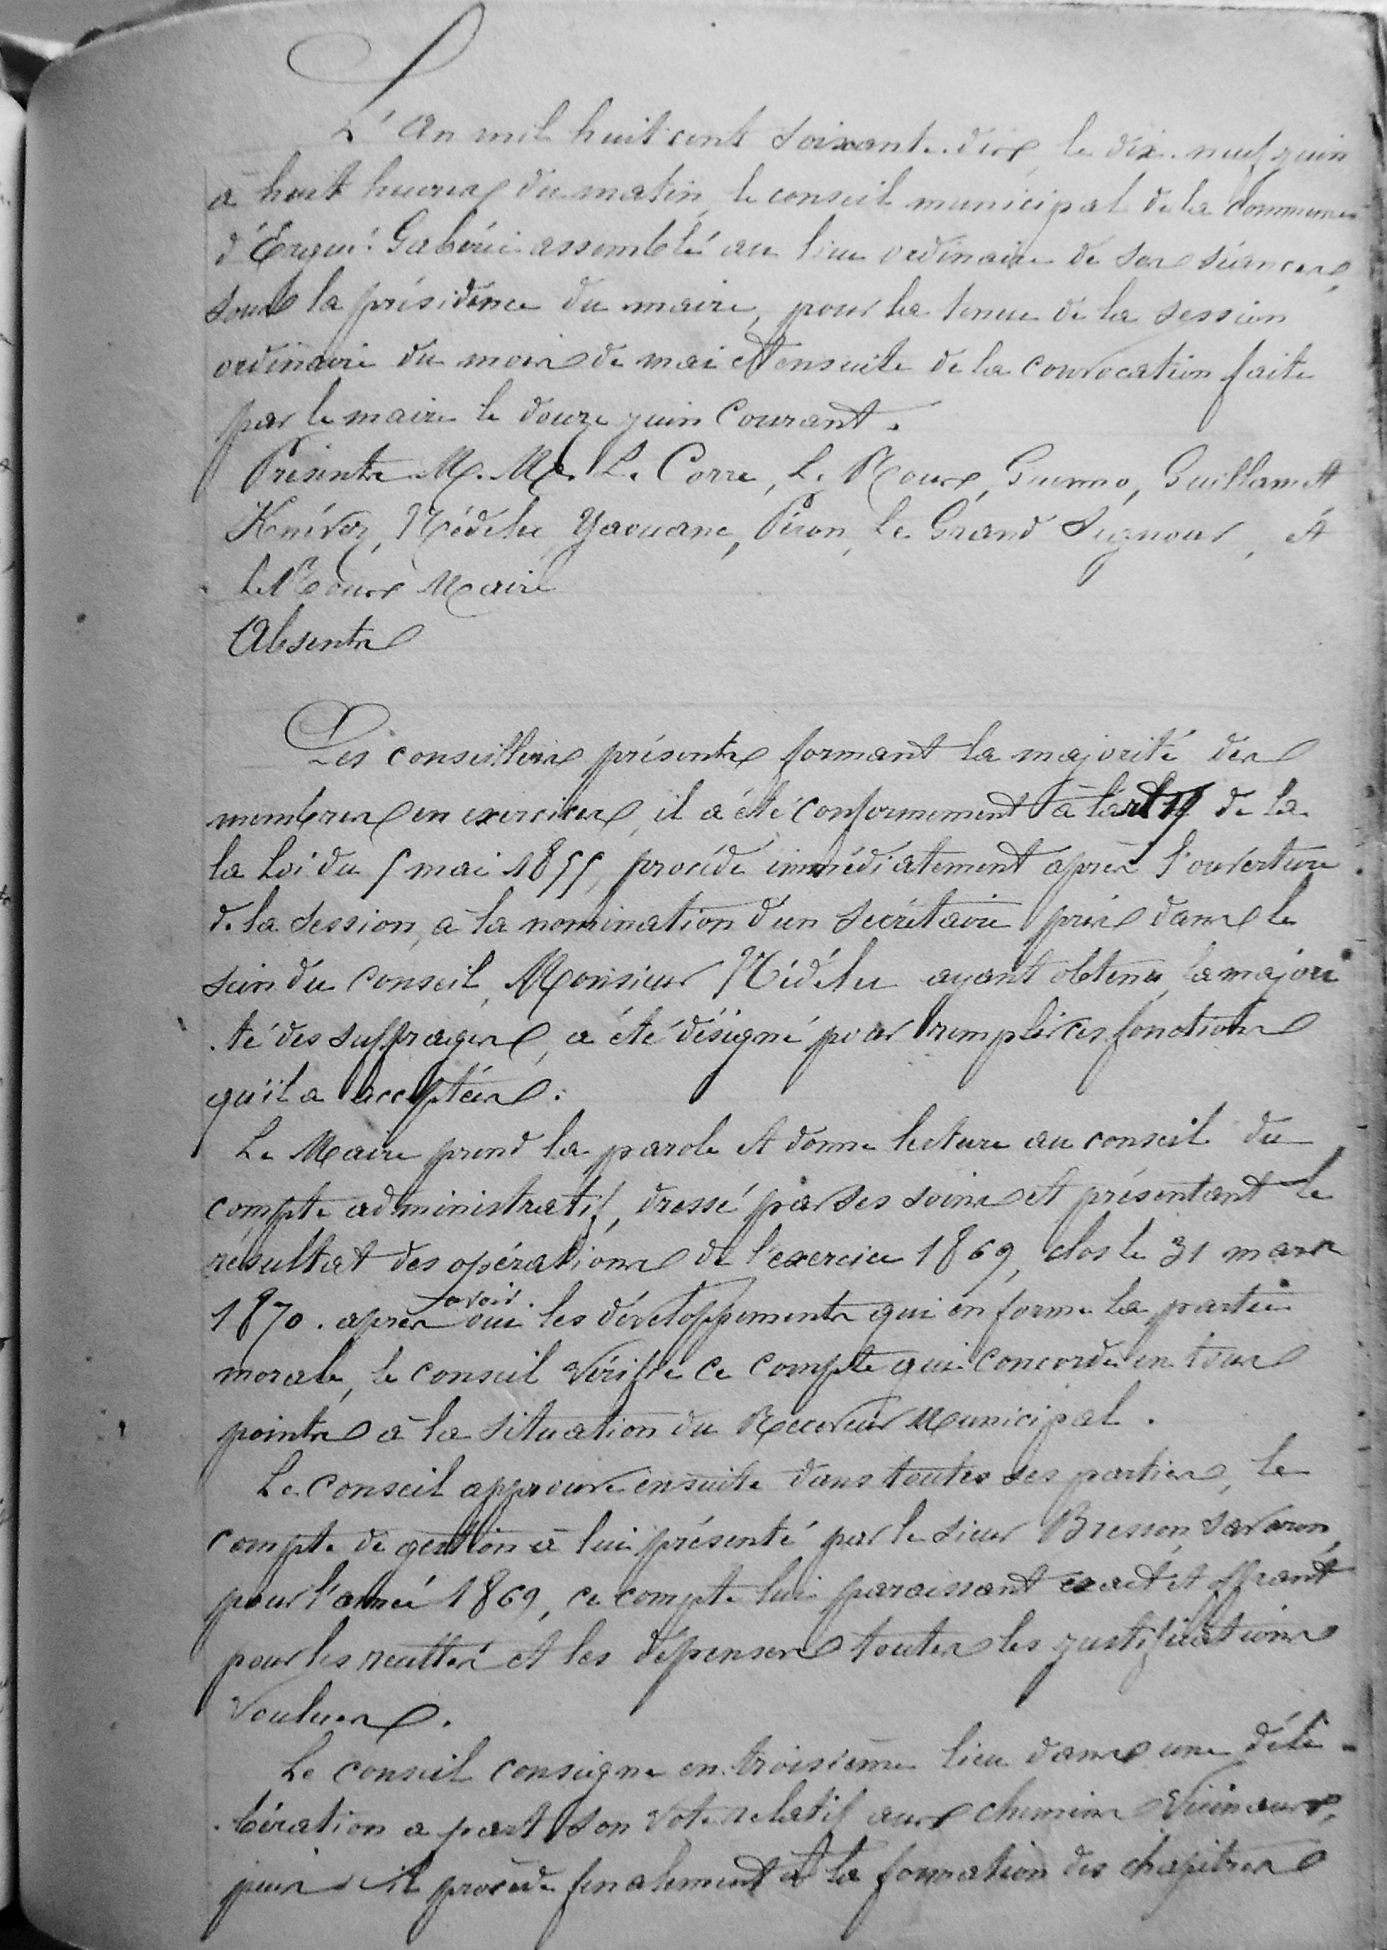 L'An mil huit cent soixante-dix, le dix-neuf juin
à huit heures du matin, le conseil municipal de la Commune
d'Ergué-Gabéric assemblé au lieu ordinaire de ses séances,
sous la présidence du maire, pour la tenue de la session
ordinaire du mois de mai et ensuite de la convocation faite
par le maire le douze juin Courant.
Présents M. Mrs Le Corre, Le Roux, Guenno, Guillamet
Knévez, Nédélec, Yaouanc, Piron, Le Grand Signour, et
Le Roux Maire
Absents
Les conseillers présents formant la majorité des
membres en exercices, il a été conformement à l'art 19 de la
la Loi du 5 mai 1855, procédé immédiatement après l'ouverture
de la session, à la nomination d'un secrétaire pris dans le
sein du conseil, Monsieur Nédélec ayant obtenu la majori
té des suffrages, a été désigné pour remplir ces fonctions
qu'il a acceptées.
Le Maire prend la parole et donne lecture au conseil du
compte administratif, dressé par ses soins et présentant le
résultat des opérations de l'exercice 1869, clos le 31 mars
1870. après avoir ouï les développements qui en forme la partie
morale, le conseil vérifie ce compte qui concorde en tous
points à la situation du Receveur Municipal.
Le Conseil approuve ensuite dans toutes ses parties, le
compte de gestion à lui présenté par le sieur Bresson,
pour l'année 1869, ce compte lui paraissant exact et offrant
pour les recettes et les dépenses toutes les justifications
voulues.
Le conseil consigne en troisième lieu dans une déli-
bération a part son vote relatif aux chemins vicinaux,
puis il procède finalement à la formation des chapitres